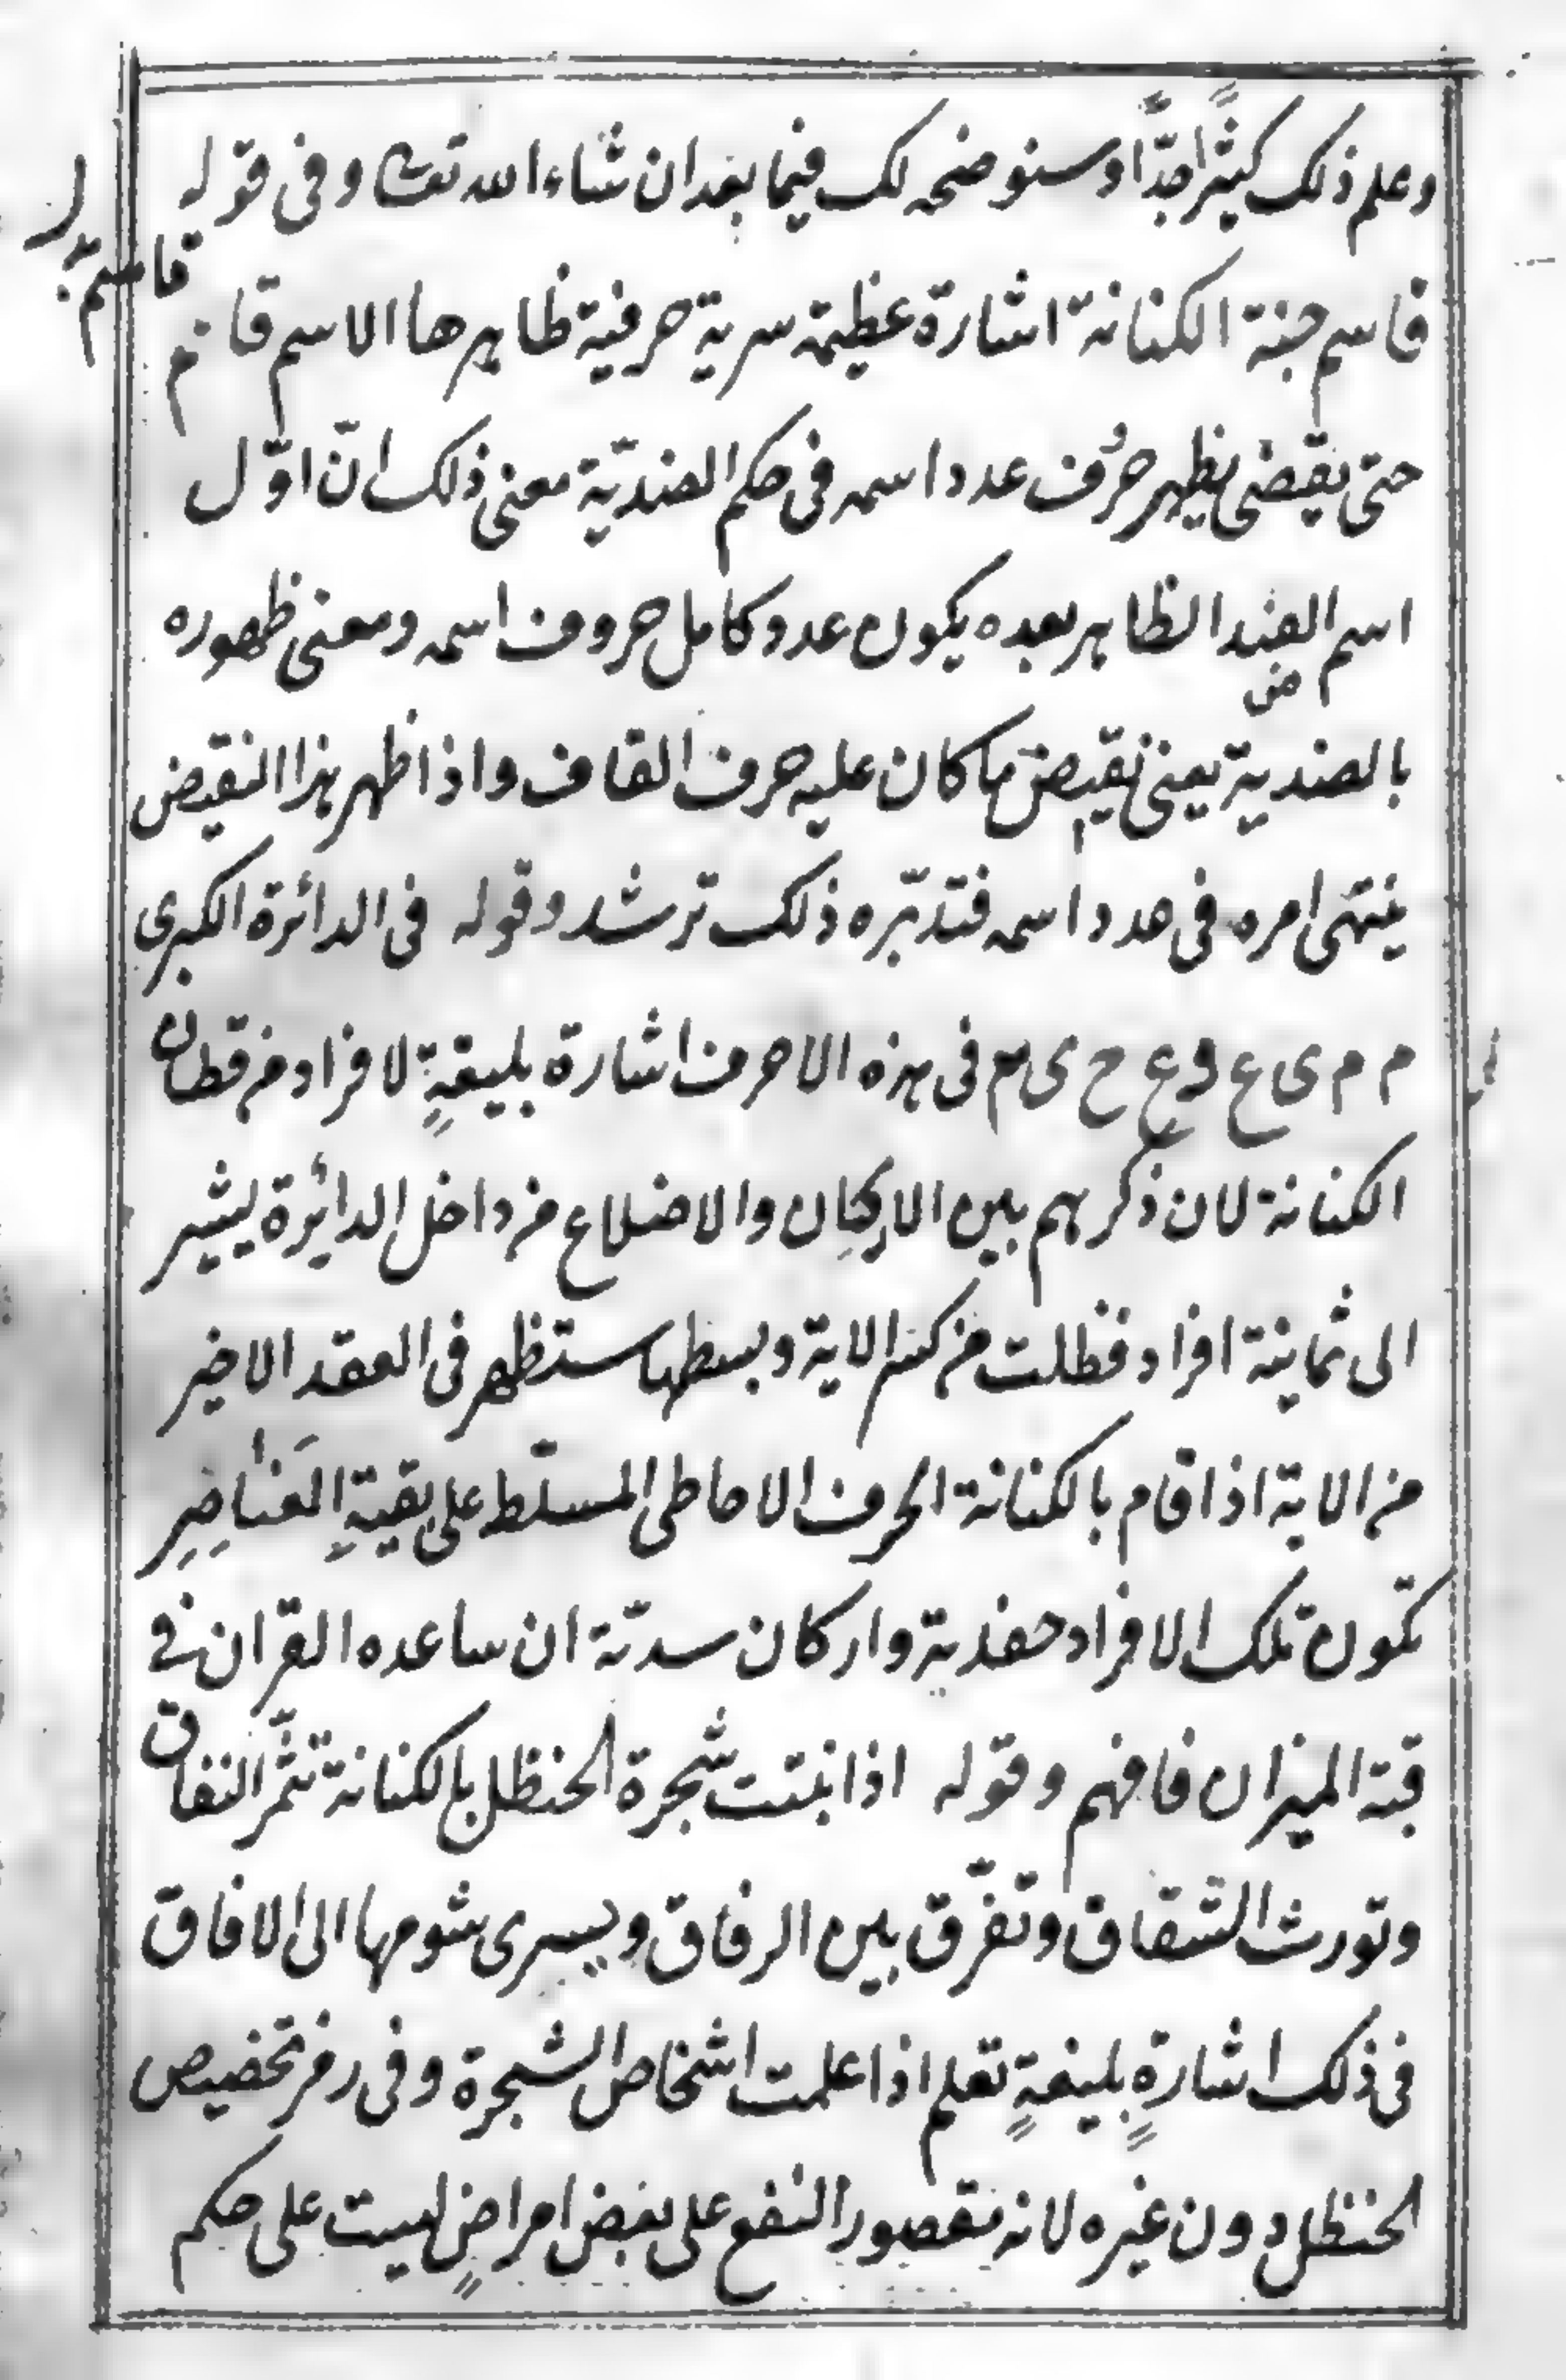 وعلم ذلك كثيرًا جدًّا وسنوضحه لك فيما بعد ان شاء الله تعالى وفى قوله
قاسم جنة الكنانة اشارة عظيمة سرية حرفية ظاهرها الاسم قائم
حتى يقضى يظهر حرف عدد اسمه فى حكم الضديّة معنى ذلك انّ اوّل
اسم الضد الظاهر بعده يكون عدد كامل حروف اسمه ومعنى ظهوره
بالضدية يعنى نقيض ما كان عليه حرف القاف واذا ظهر هذا النقيض
ينتهى امره فى عدد اسمه فتدبّره ذلك ترشد وقوله فى الدائرة الكبرى
م م ى ع و ع ح ى م فى هذه الاحرف اشارة بليغةٍ لافراد من قطان
الكنانة لان ذكرهم بين الاركان والاضلاع من داخل الدائرة يشير
الى ثمانية افراد فظلت من كسر الاية وبسطها ستظهر فى العقد الاخير
من الاية اذا قام بالكنانة الحرف الاحاطى المسلّط على بقيةِ العناصِرِ
تكون تلك الافراد حفدية واركان سدّته ان ساعده القران فى
قبة الميزان فافهم وقوله اذا نبتت شجرة الحنظل بالكنانة تثمّر النفاق
وتورث الشقاق وتفرّق بين الرفاق ويسرى شومها الى الافاق
فى ذلك اشارةٍ بليغةٍ تعلم اذا علمت اشخاص الشجرة وفى رمز تخصيص
الحنظل دون غيره لانه مقصور النفع على بعض امراضٍ ليست على حكم